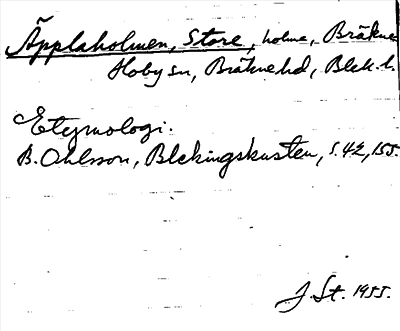 Äpplaholmen, Store, holme, Bräkne
Hoby sn, Bräkne hd, Blek. l.
Etymologi.
B. Ohlsson, Blekingskusten, s. 42, 155.
J. St. 1955.